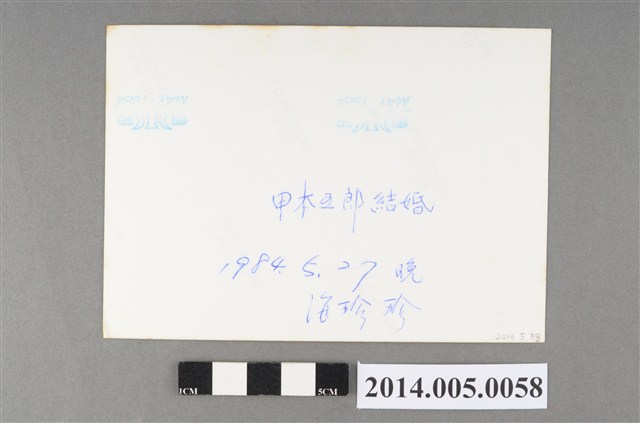 甲本五郎結婚
1984.5.27 晚
海珍珍
1CM
5CM
2014.005.0058